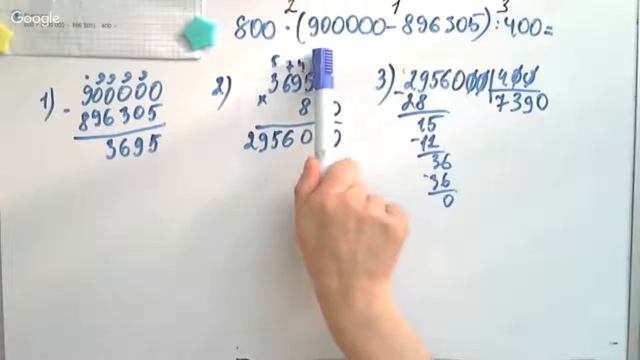 Google
2 1 3
800 · (900000 - 896305) : 400 =
1) 900000
- 896305
3695
2) 5 7 4
3695
× 8
29560
3) 2956000 | 400
- 28 7390
15
- 12
36
- 36
0